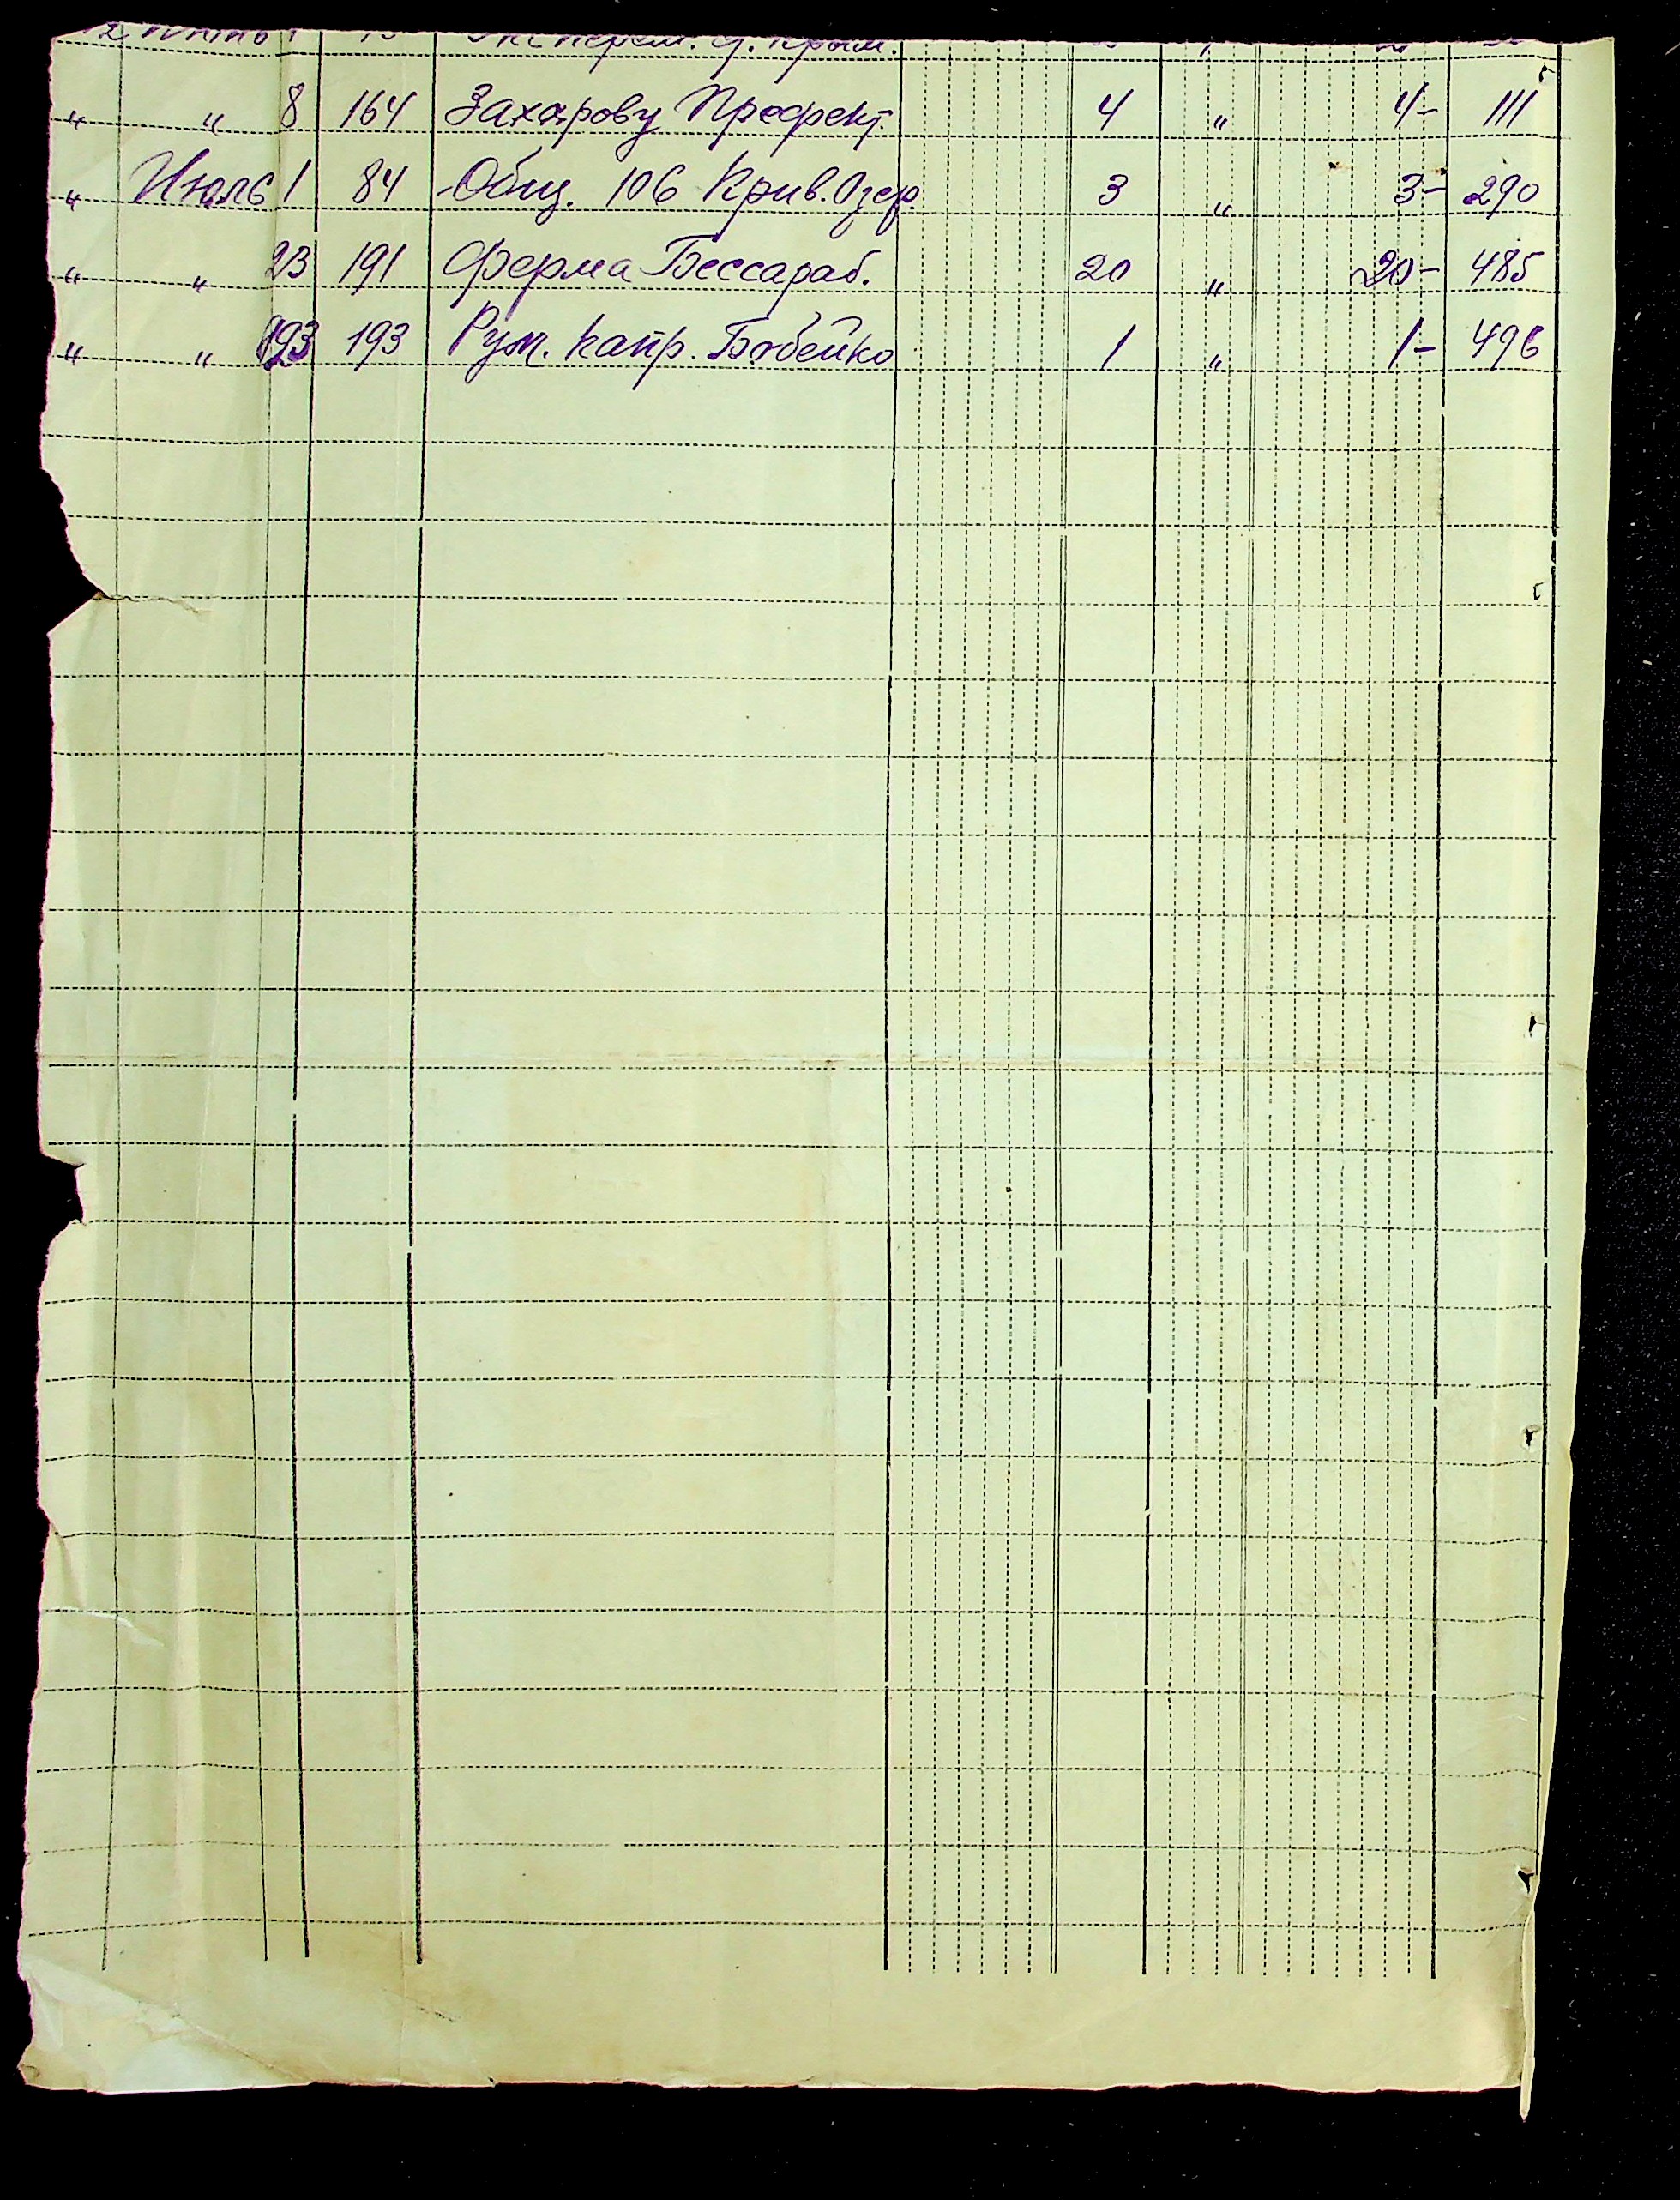 " " 8 164 Захарову Префект. 4 " 4- 111
" Июль 1 84 Общ. 106 Крив. Озер. 3 " 3- 290
" " 23 191 Ферма Бессараб. 20 " 20- 485
" " 193 Рум. капр. Бобейко 1 " 1- 496